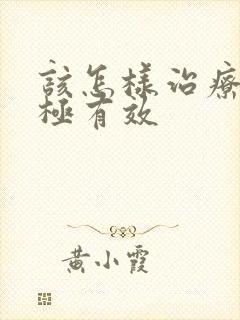 該怎樣治療
極有效
黃小霞